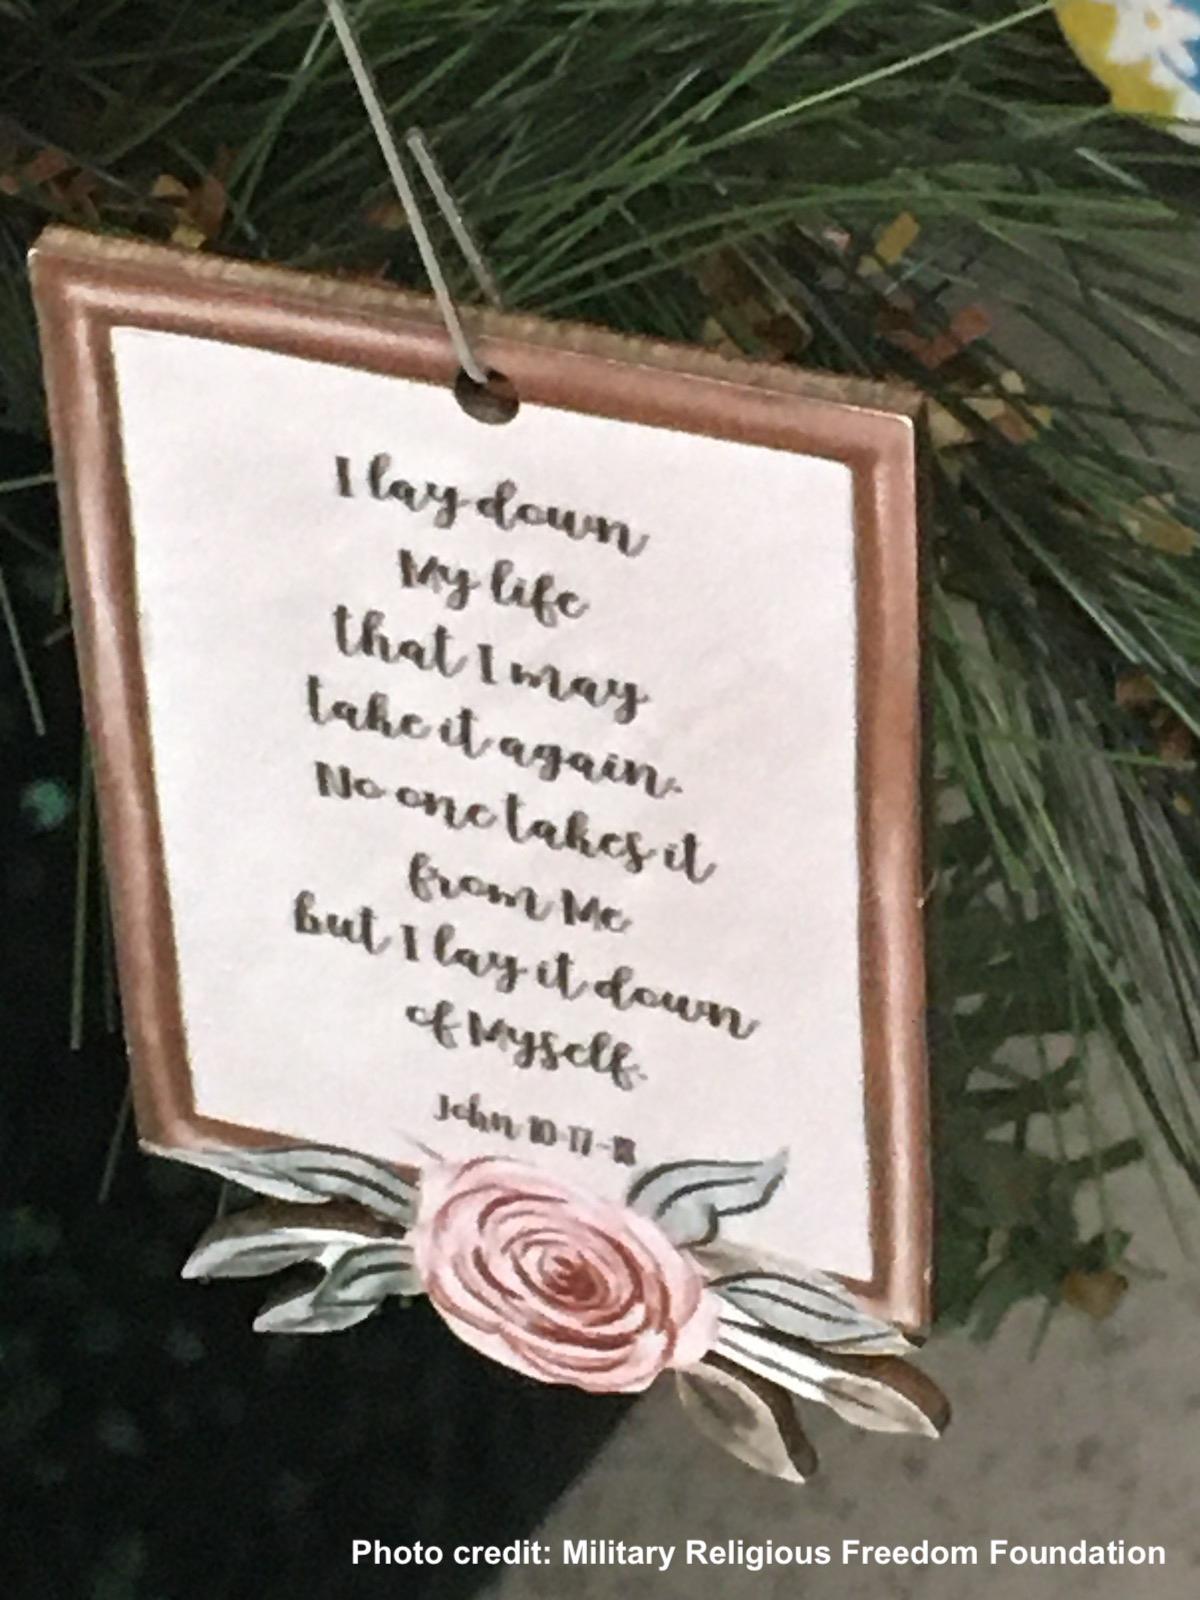 I lay down
My life
that I may
take it again.
No one takes it
from Me
but I lay it down
of Myself.
John 10-17-18
Photo credit: Military Religious Freedom Foundation